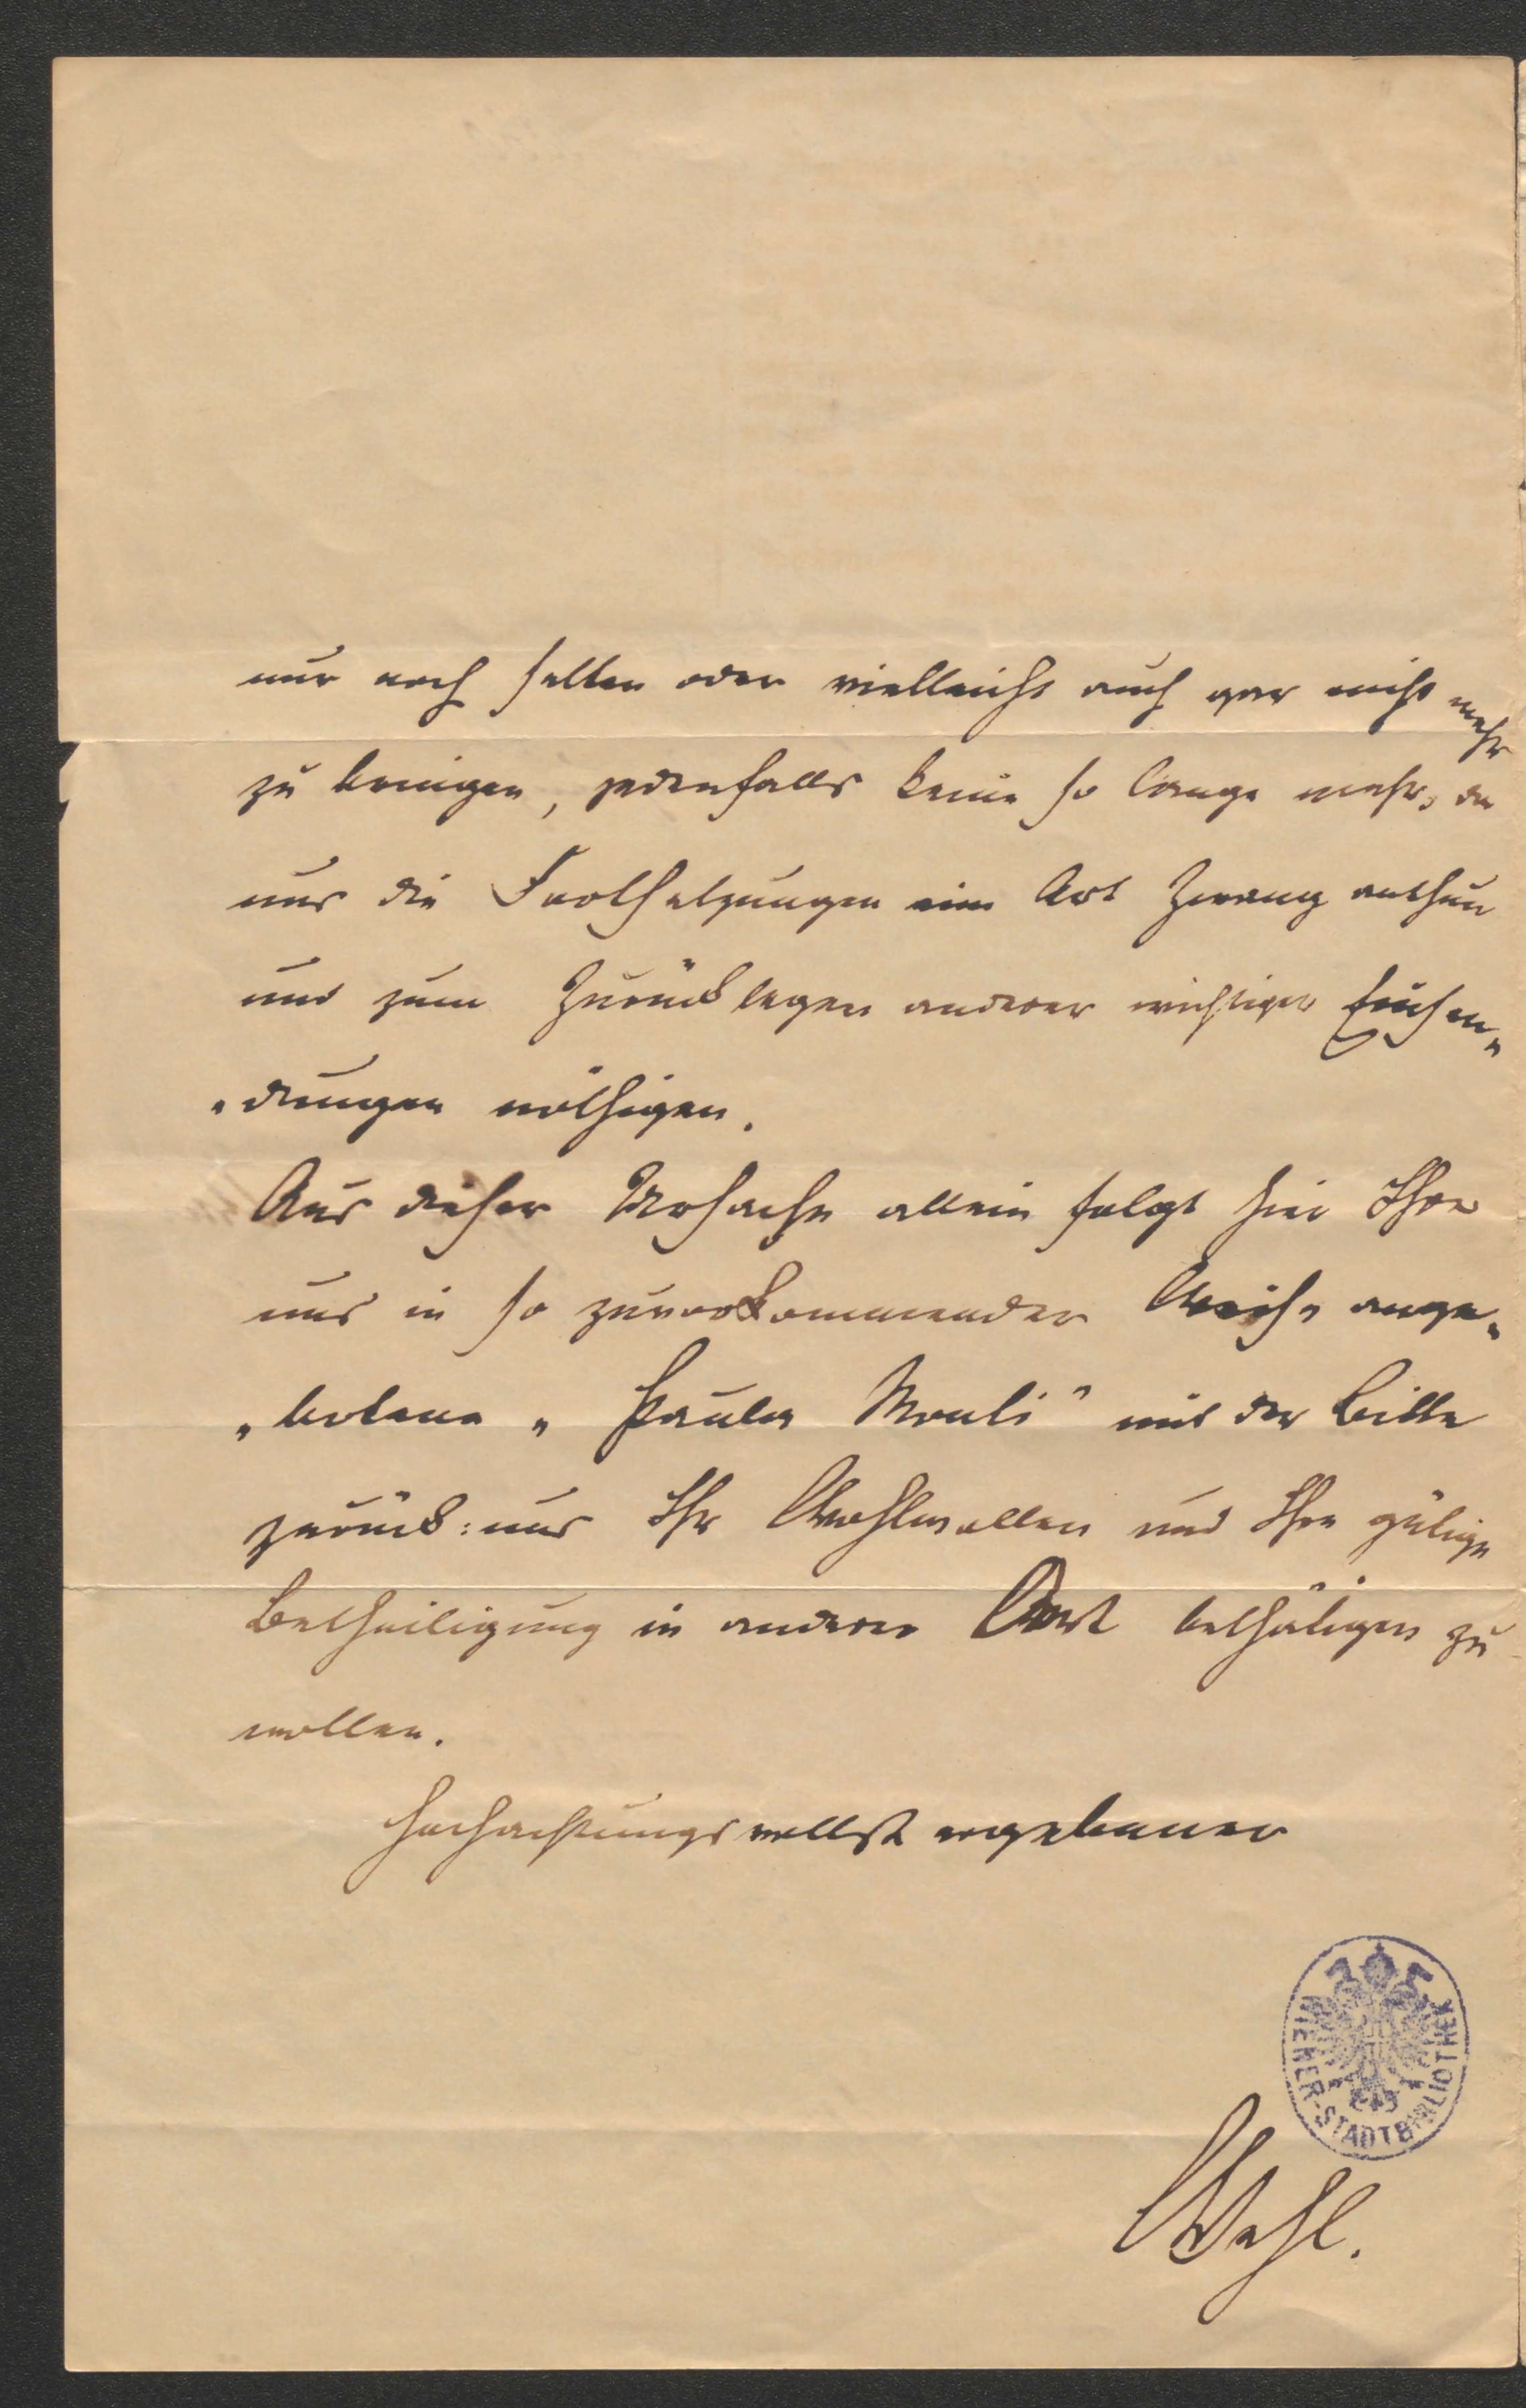 nur noch selten oder vielleicht auch gar nicht mehr
zu bringen, jedenfalls keine so lange mehr, da
uns die Fortsetzungen eine Art Zwang anthun
und zum Zurücklegen anderer wichtiger Einsen„
„dungen nöthigen.
Aus dieser Ursache allein folgt hier Ihre
uns in so zuvorkommender Weise ange„
„botene „Paula Monti" mit der Bitte
zurück: uns Ihr Wohlwollen und Ihre gütige
Betheiligung in anderer Art bethätigen zu
wollen.
Hochachtungsvollst ergebener
WIENER-STADTBIBLIOTHEK
Wehl.